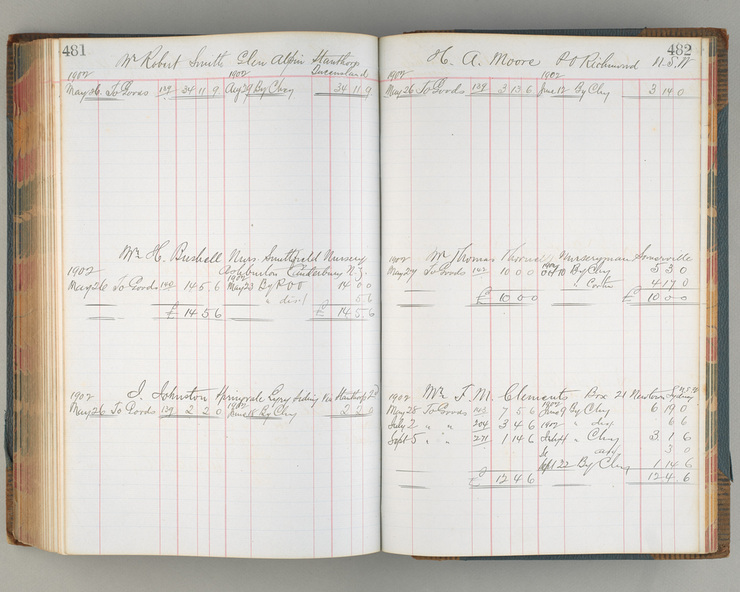 481
Mr Robert Smith Glen Aplin Stanthorpe
Queensland
1902 1902
May 26 To Goods 139 34 11 9 Aug 29 By Chq 34 11 9
Mr H. Bushell Nurs Smithfield Nursery
Ashburton Canterbury N.Z.
1902 1902
May 26 To Goods 140 14 5 6 May 23 By P O O 14 0 0
" dis/ 5 6
£ 14 5 6 £ 14 5 6
J. Johnston Springvale Siding Via Stanthorpe
1902 1902
May 26 To Goods 139 2 2 0 June 18 By Chq 2 2 0
482
H. A. Moore P O Richmond N.S.W
1902 1902
May 26 To Goods 139 3 13 6 June 12 By Chq 3 14 0
Mr Thomas Nurseryman Somerville
1902 1902
May 27 To Goods 142 10 0 0 Oct 10 By Chq 5 3 0
" Contra 4 17 0
£ 10 0 0 £ 10 0 0
Mr F. M. Clements Box 21 Newtown Sydney
N.S.W
1902 1902
May 28 To Goods 142 7 5 6 June 9 By Chq 6 19 0
July 2 " " 204 3 4 6 1902 " dis 6 6
Sept 5 " " 271 1 14 6 July 4 " Chq 3 1 6
3 0
Sept 22 By Chq 1 14 6
£ 12 4 6 12 4 6